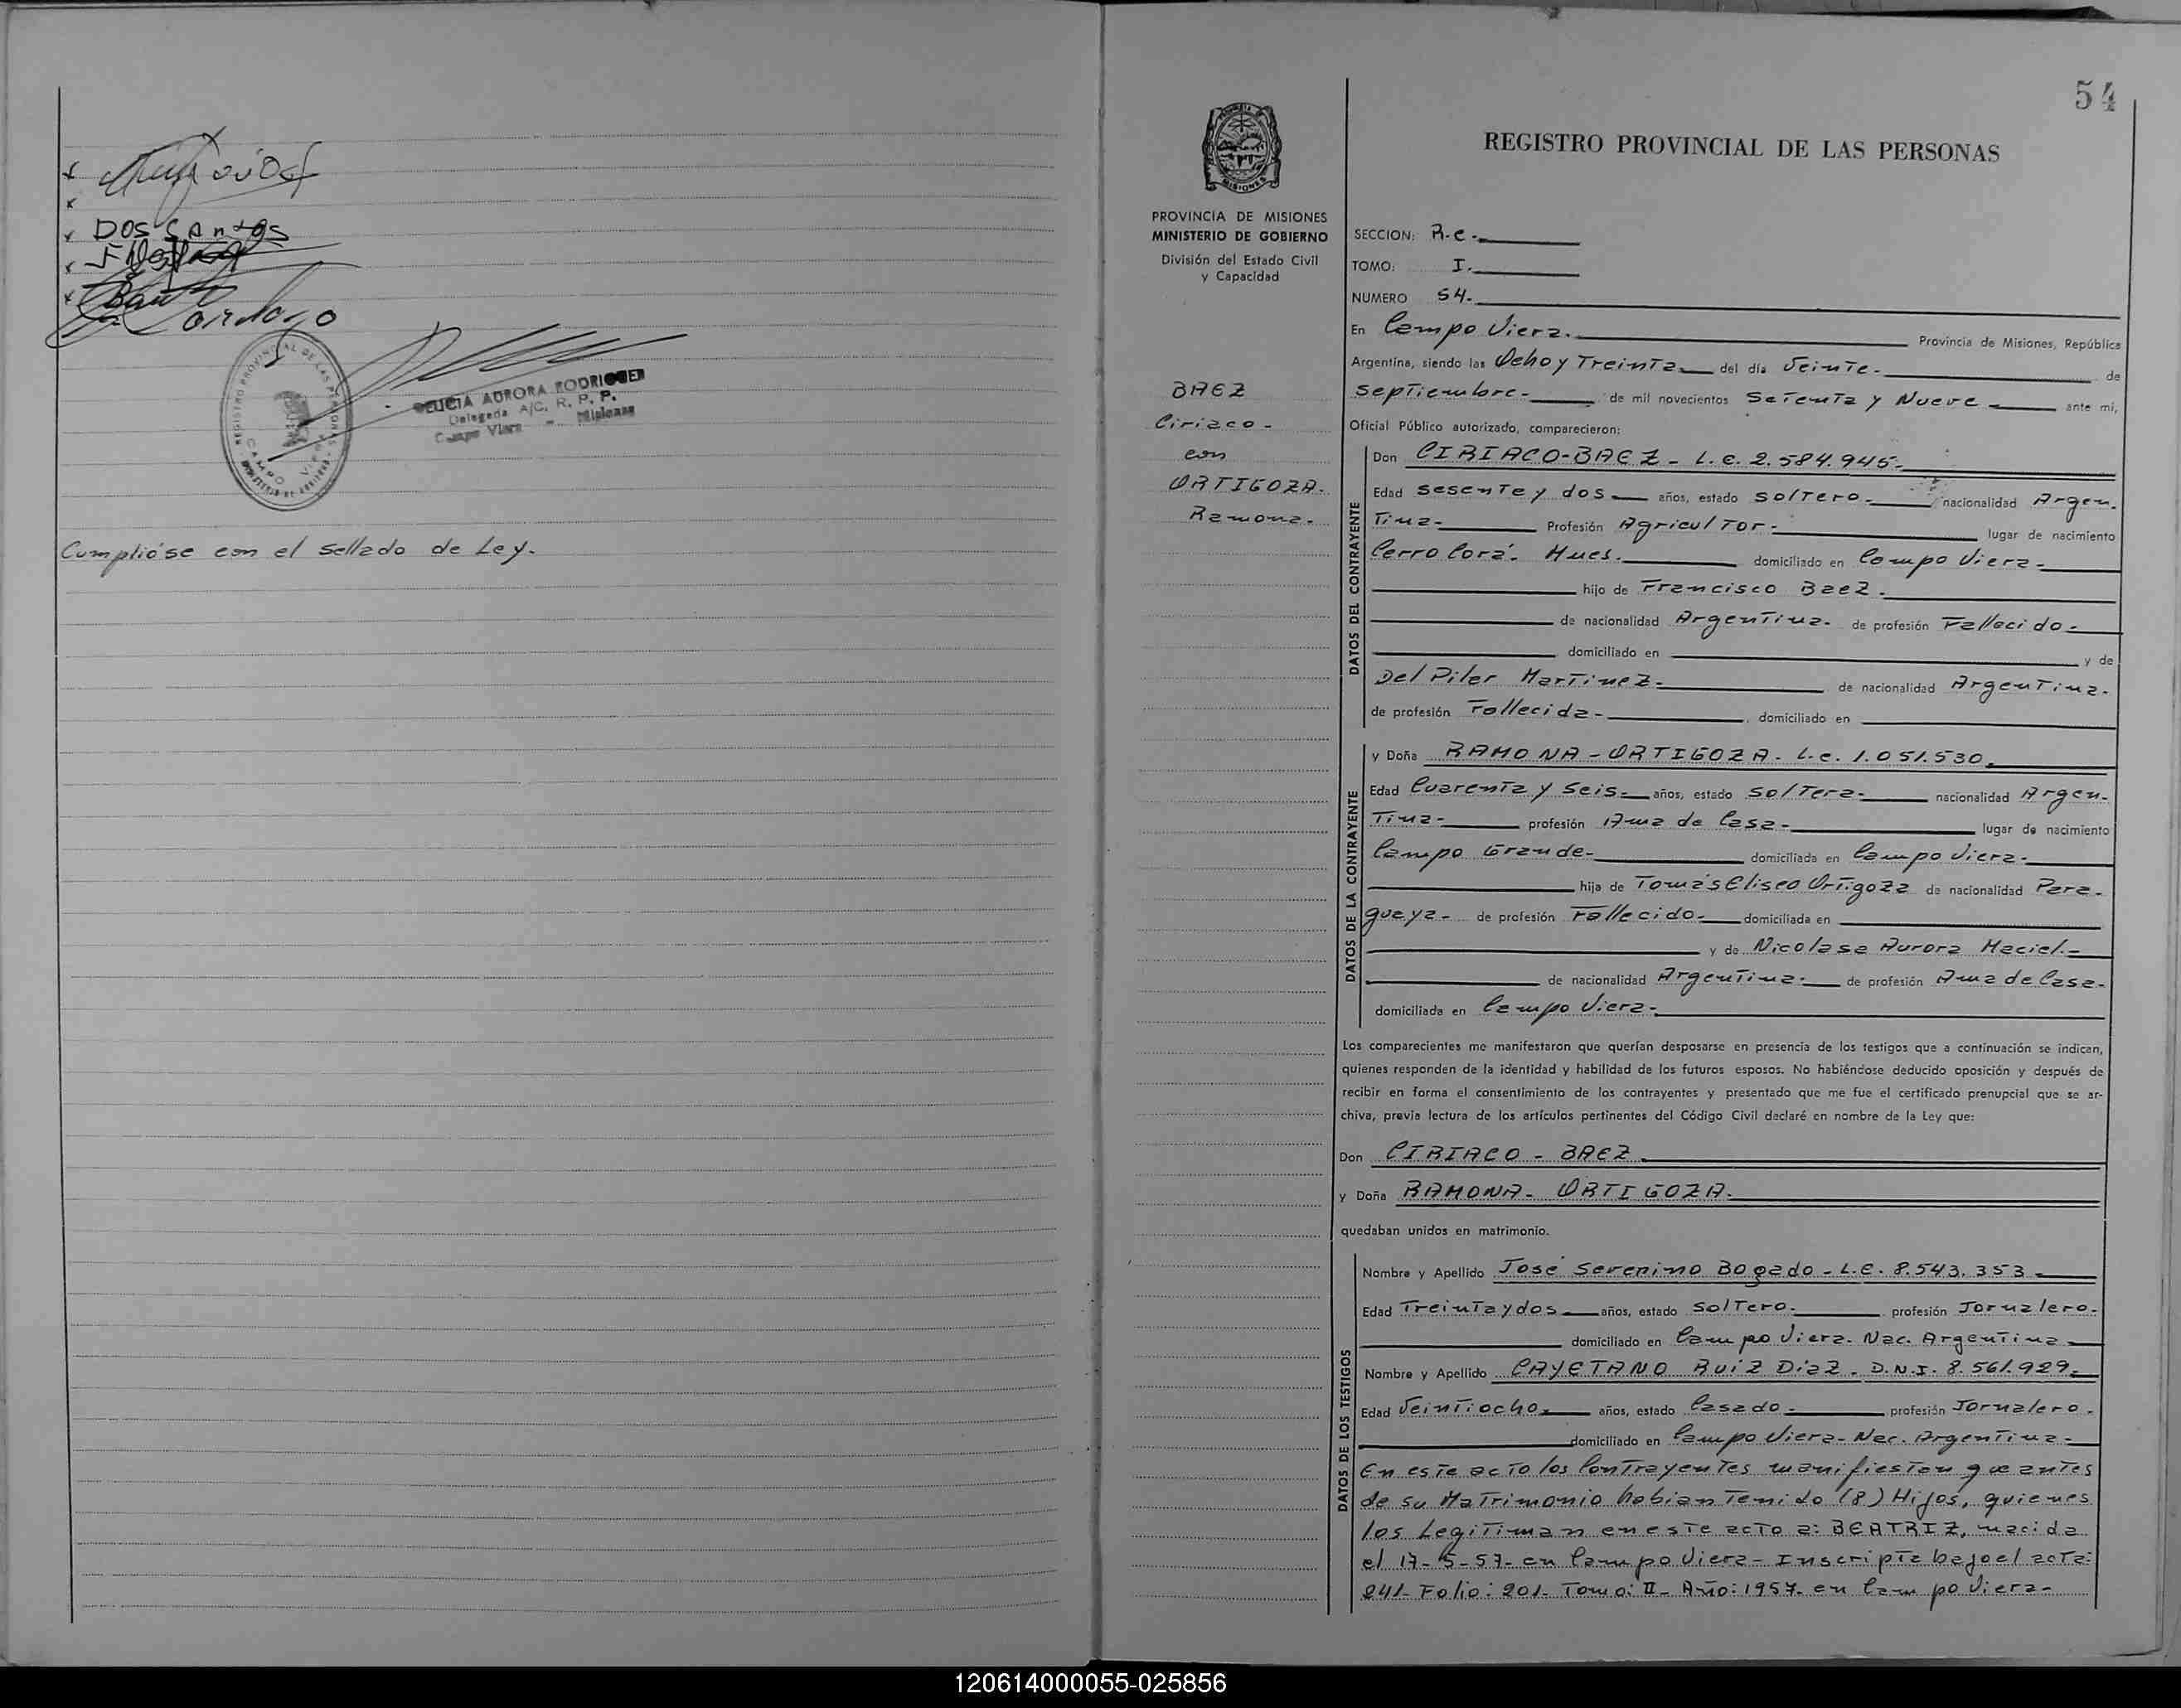 DOS SAntos
Cardozo
REGISTRO PROVINCIAL DE LAS PERSONAS
CAMPO VIERA
AURORA RODRIGUEZ
Delegada A/C. R. P. P.
Campo Viera - Misiones
Cumplióse con el sellado de Ley.
54
PROVINCIA DE MISIONES
MINISTERIO DE GOBIERNO
División del Estado Civil
y Capacidad
BAEZ
Ciriaco -
con
ORTIGOZA.
Ramona.
REGISTRO PROVINCIAL DE LAS PERSONAS
SECCION: R.C.-
TOMO: I.
NUMERO 54.
En Campo Viera. Provincia de Misiones, República
Argentina, siendo las Ocho y Treinta del día Veinte. de
septiembre. de mil novecientos Setenta y Nueve ante mí,
Oficial Público autorizado, comparecieron:
DATOS DEL CONTRAYENTE
Don CIRIACO-BAEZ - L.E. 2.584.945.
Edad Sesenta y dos años, estado soltero. nacionalidad Argen-
tina- Profesión Agricultor. lugar de nacimiento
Cerro Corá. Mnes. domiciliado en Campo Viera.
hijo de Francisco Baez.
de nacionalidad Argentina. de profesión Fallecido.
domiciliado en y de
Del Pilar Martinez. de nacionalidad Argentina.
de profesión Fallecida. domiciliado en
DATOS DE LA CONTRAYENTE
y Doña RAMONA-ORTIGOZA. L.C. 1.051.530.
Edad Cuarenta y Seis. años, estado soltera. nacionalidad Argen-
tina- profesión Ama de Casa- lugar de nacimiento
Campo Grande- domiciliada en Campo Viera.
hija de Tomás Eliseo Ortigoza de nacionalidad Para-
guaya- de profesión Fallecido. domiciliada en
y de Nicolasa Aurora Maciel.
de nacionalidad Argentina. de profesión Ama de Casa.
domiciliada en Campo Viera.
Los comparecientes me manifestaron que querían desposarse en presencia de los testigos que a continuación se indican,
quienes responden de la identidad y habilidad de los futuros esposos. No habiéndose deducido oposición y después de
recibir en forma el consentimiento de los contrayentes y presentado que me fue el certificado prenupcial que se ar-
chiva, previa lectura de los artículos pertinentes del Código Civil declaré en nombre de la Ley que:
Don CIRIACO - BAEZ.
y Doña RAMONA- ORTIGOZA.
quedaban unidos en matrimonio.
DATOS DE LOS TESTIGOS
Nombre y Apellido José Severino Bogado - L.E. 8.543.353
Edad Treinta y dos años, estado Soltero. profesión Jornalero.
domiciliado en Campo Viera. Nac. Argentina
Nombre y Apellido CAYETANO RUIZ DiaZ. D.N.I. 8.561.929.
Edad Veintiocho. años, estado Casado. profesión Jornalero.
domiciliado en Campo Viera- Nac. Argentina.
En este acto los Contrayentes manifiestan que antes
de su Matrimonio habian Tenido (8) Hijos, quienes
los Legitiman en este acto a: BEATRIZ, nacida
el 17-5-57- en Campo Viera- Inscripta bajo el acta:
241- Folio: 201- Tomo: II- Año: 1957- en Campo Viera-
120614000055-025856